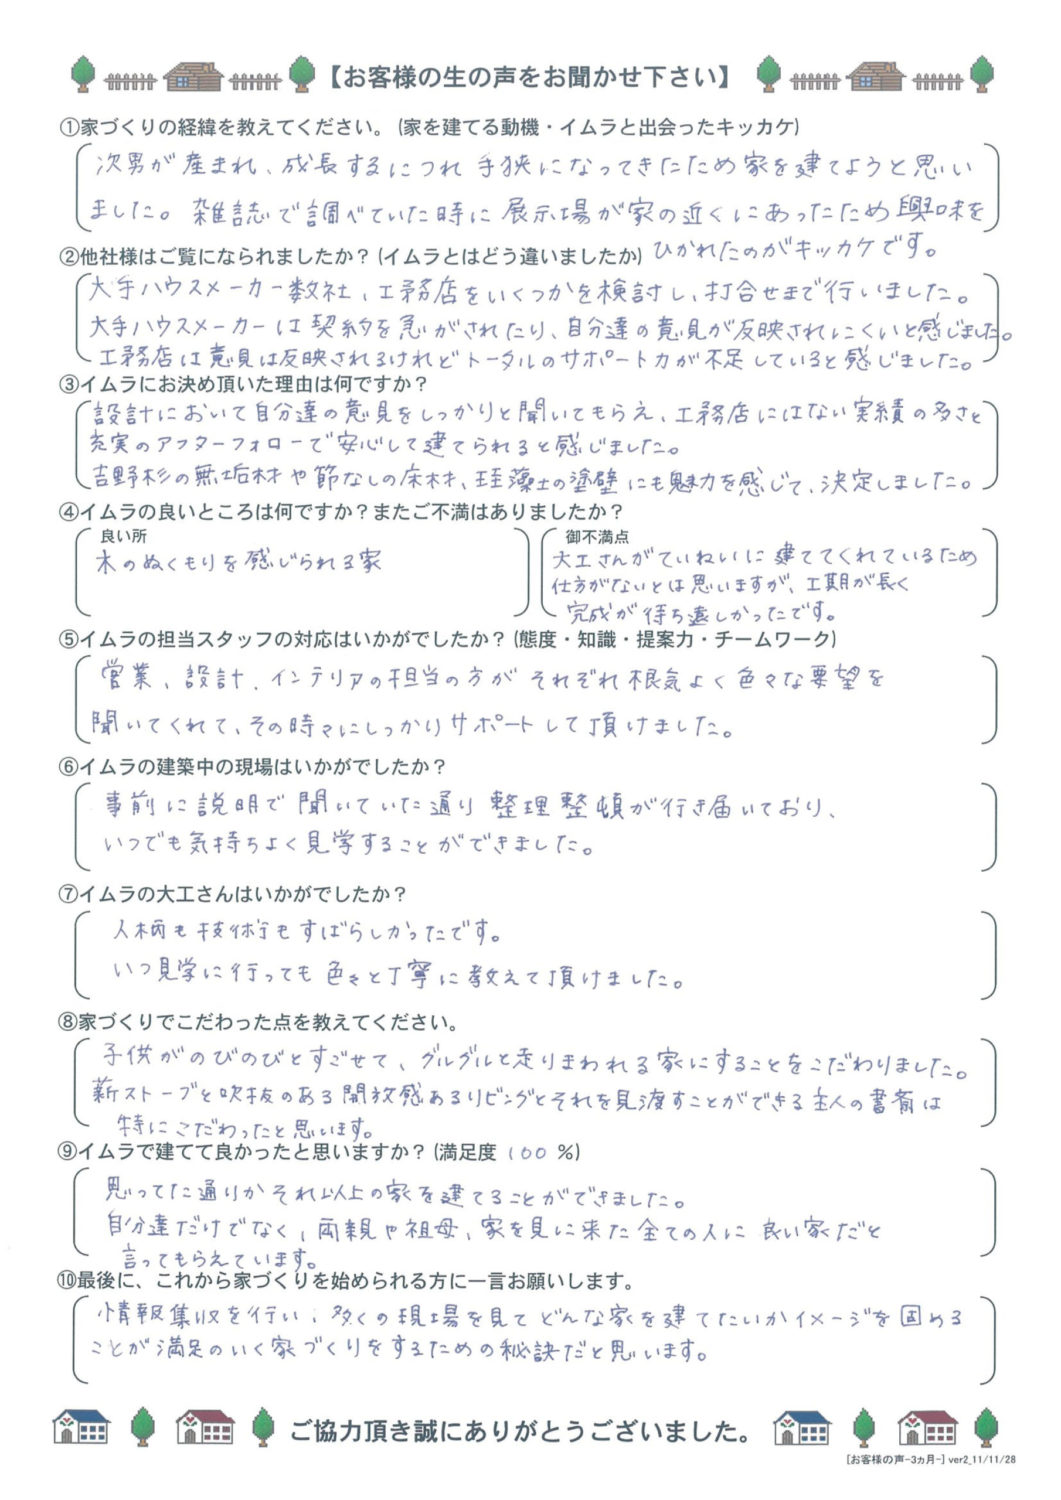 【お客様の生の声をお聞かせ下さい】
①家づくりの経緯を教えてください。(家を建てる動機・イムラと出会ったキッカケ)
次男が産まれ、成長するにつれ手狭になってきたため家を建てようと思い
ました。雑誌で調べていた時に展示場が家の近くにあったため興味を
ひかれたのがキッカケです。
②他社様はご覧になられましたか？(イムラとはどう違いましたか)
大手ハウスメーカー数社、工務店をいくつかを検討し、打合せまで行いました。
大手ハウスメーカーは契約を急がされたり、自分達の意見が反映されにくいと感じました。
工務店は意見は反映されるけれどトータルのサポート力が不足していると感じました。
③イムラにお決め頂いた理由は何ですか？
設計において自分達の意見をしっかりと聞いてもらえ、工務店にはない実績の多さと
充実のアフターフォローで安心して建てられると感じました。
吉野杉の無垢材や節なしの床材、珪藻土の塗壁にも魅力を感じて、決定しました。
④イムラの良いところは何ですか？またご不満はありましたか？
良い所
木のぬくもりを感じられる家
御不満点
大工さんがていねいに建ててくれているため
仕方がないとは思いますが、工期が長く
完成が待ち遠しかったです。
⑤イムラの担当スタッフの対応はいかがでしたか？(態度・知識・提案力・チームワーク)
営業、設計、インテリアの担当の方がそれぞれ根気よく色々な要望を
聞いてくれて、その時々にしっかりサポートして頂けました。
⑥イムラの建築中の現場はいかがでしたか？
事前に説明で聞いていた通り整理整頓が行き届いており、
いつでも気持ちよく見学することができました。
⑦イムラの大工さんはいかがでしたか？
人柄も技術もすばらしかったです。
いつ見学に行っても色々と丁寧に教えて頂けました。
⑧家づくりでこだわった点を教えてください。
子供がのびのびとすごせて、グルグルと走りまわれる家にすることをこだわりました。
薪ストーブと吹抜のある開放感あるリビングとそれを見渡すことができる主人の書斎は
特にこだわったと思います。
⑨イムラで建てて良かったと思いますか？(満足度 100 %)
思ってた通りかそれ以上の家を建てることができました。
自分達だけでなく、両親や祖母、家を見に来た全ての人に良い家だと
言ってもらえています。
⑩最後に、これから家づくりを始められる方に一言お願いします。
情報集収を行い、多くの現場を見てどんな家を建てたいかイメージを固める
ことが満足のいく家づくりをするための秘訣だと思います。
ご協力頂き誠にありがとうございました。
[お客様の声-3ヵ月-] ver2_11/11/28